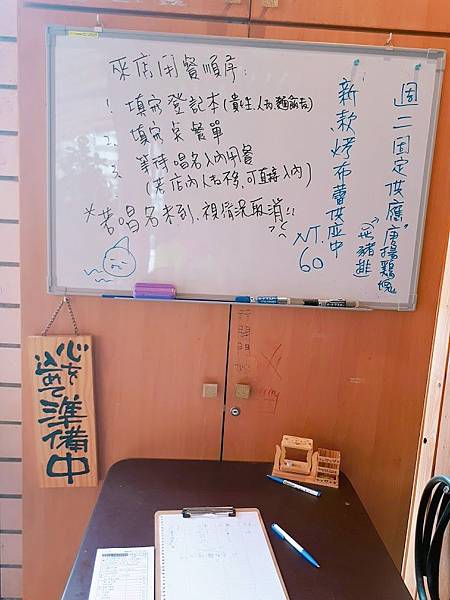 來店用餐順序:
1. 填寫登記本(貴姓、人數、
2. 填寫點餐單
3. 等待唱名入內用餐
(若店內人數不多,可直接入內)
*若唱名未到,視情況取消!!
新款烤布蕾供應中
NT.60
週二固定供應"唐揚鷄塊
(無豬排)
心を
込めて
準備中